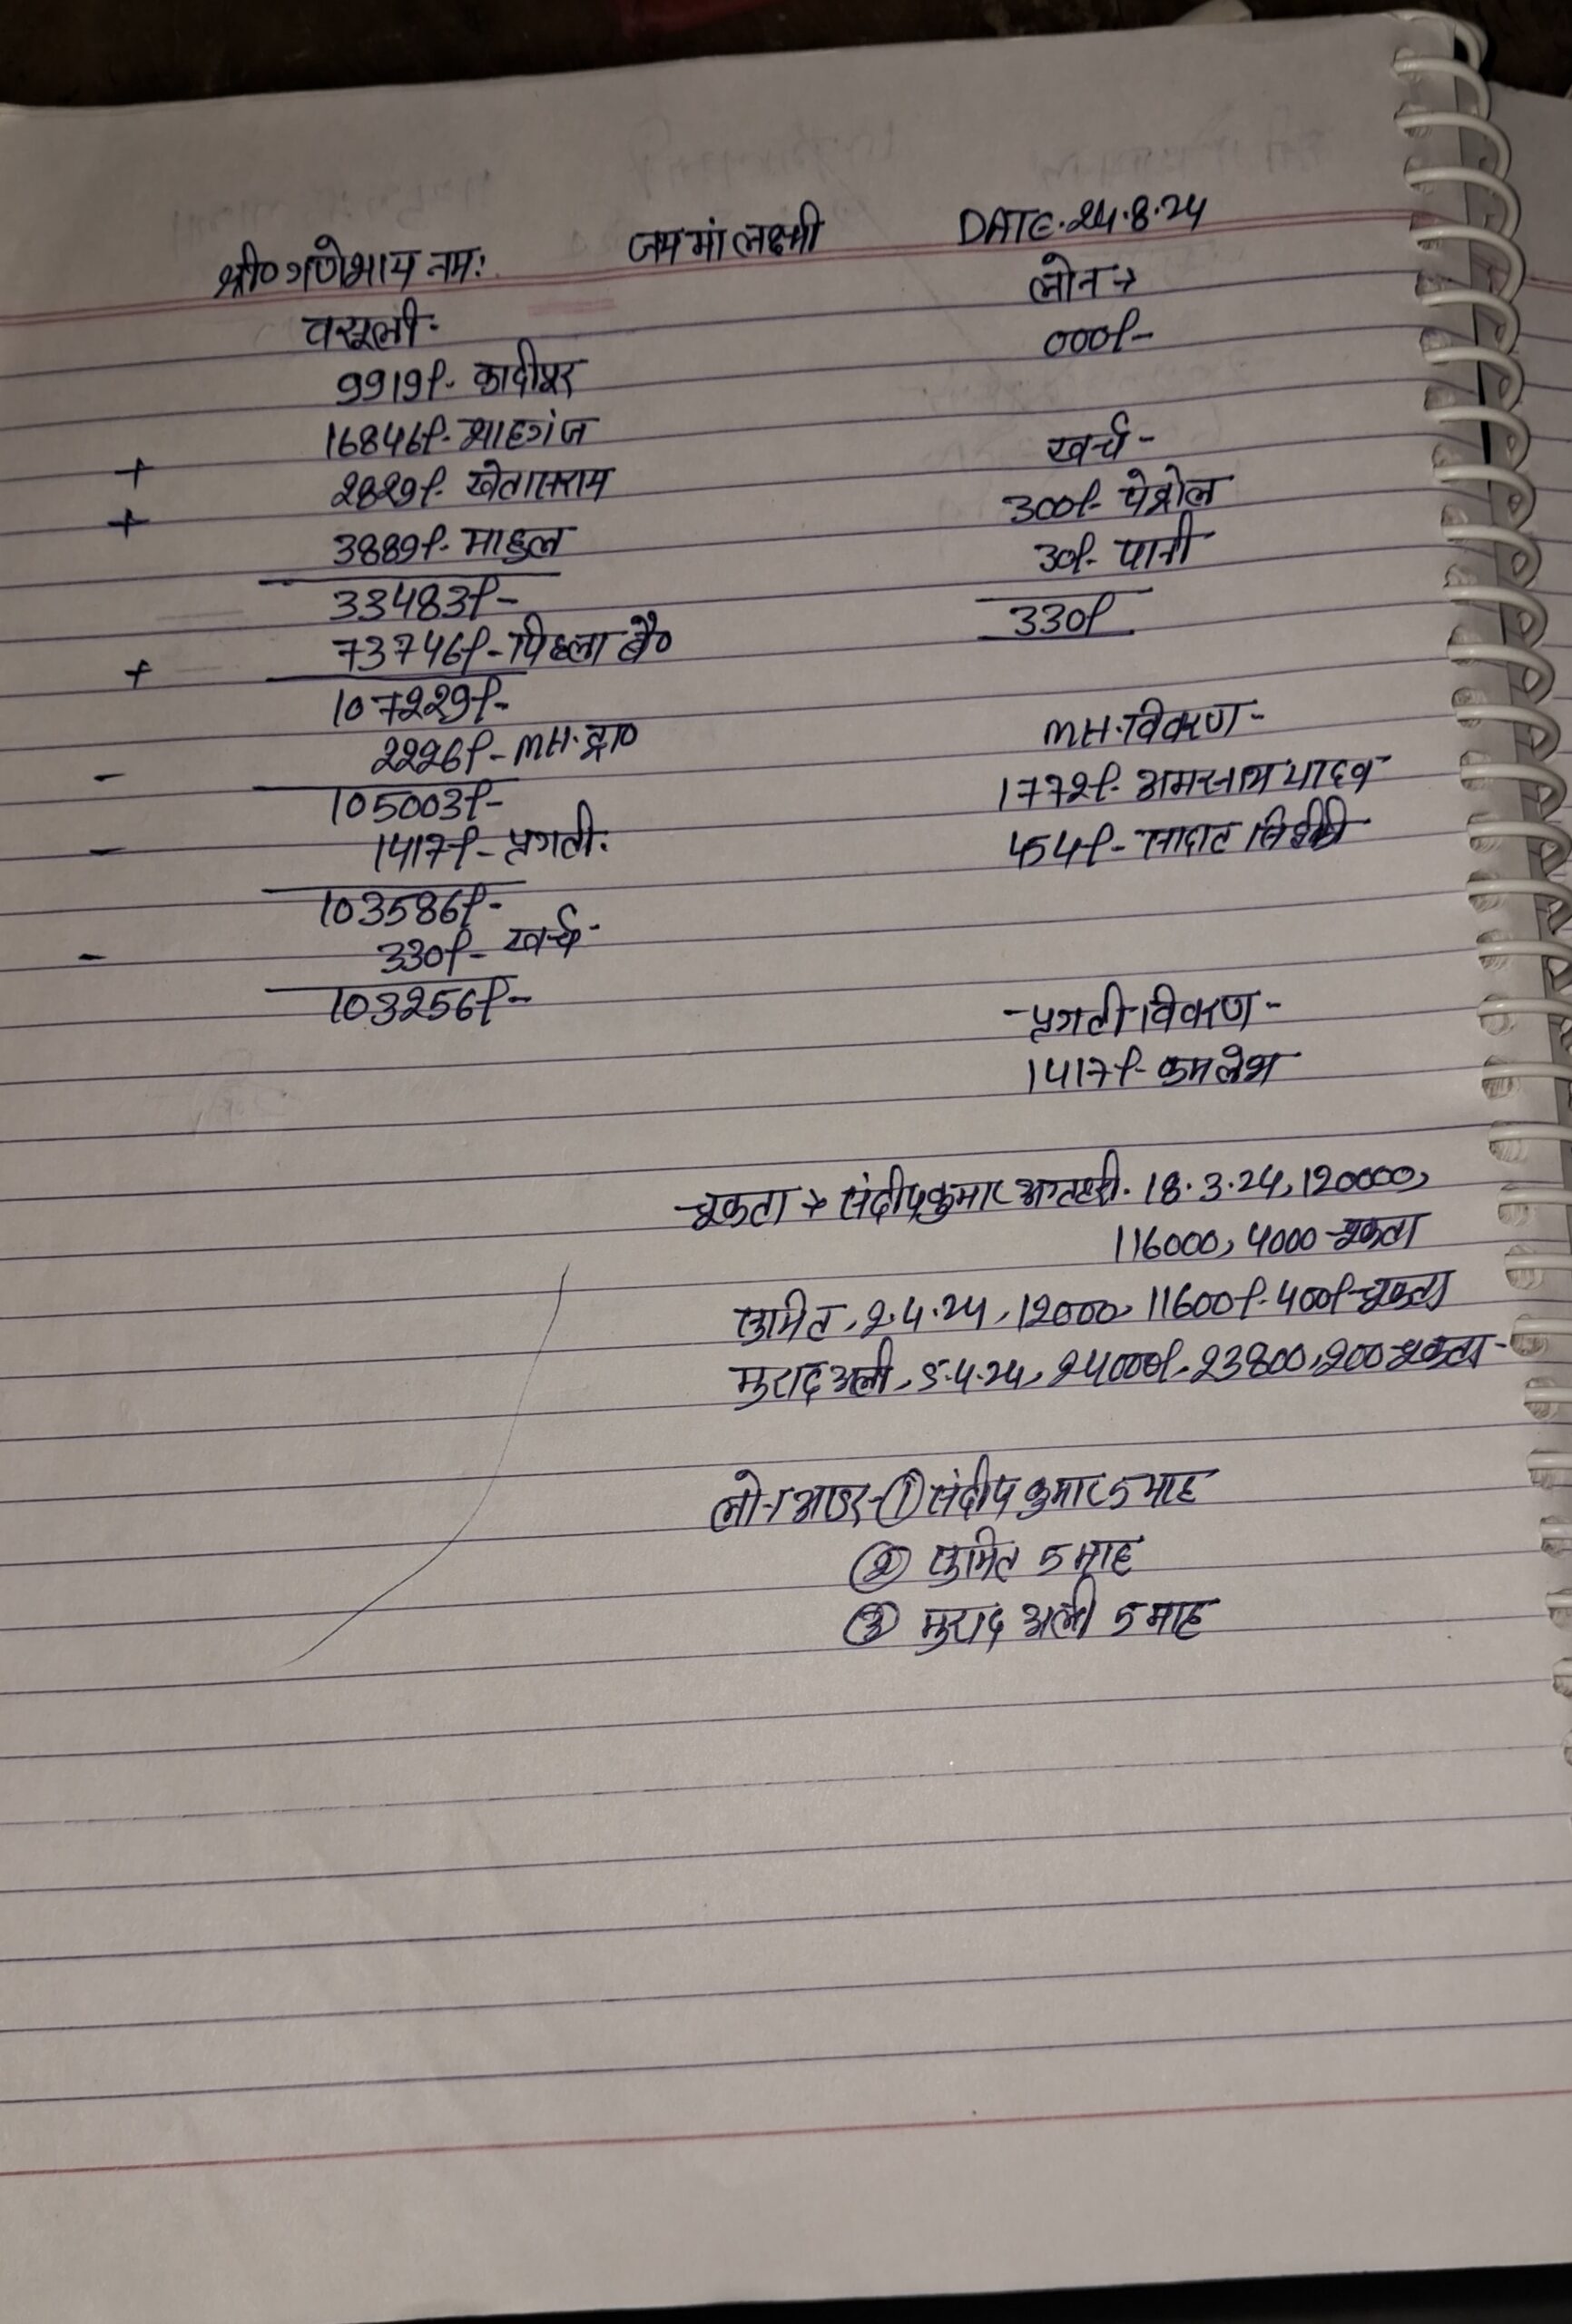 श्री० गणेशाय नमः जय मां लक्ष्मी DATE. 24.8.24
वसूली:
9919/- कादीपुर
16846/- शाहगंज
+ 2829/- खेतासराय
+ 3889/- माहुल
33483/-
+ 73746/- पिछला बै०
107229/-
- 2226/- MH. द्वा०
105003/-
- 1417/- प्रगती.
103586/-
- 330/- खर्च-
103256/-
लोन →
000/-
खर्च -
300/- पेट्रोल
30/- पानी
330/-
MH. विवरण -
1772/- अमरनाथ यादव
454/- सादात
- प्रगती विवरण -
1417/- कमलेश
चुकता → संदीप कुमार अग्रहरी. 18.3.24, 120000,
116000, 4000 चुकता
अमित, 2.4.24, 12000, 11600/- 400/- चुकता
मुराद अली, 5.4.24, 24000/-, 23800, 200 चुकता -
लोन आडर - ① संदीप कुमार 5 माह
② अमित 5 माह
③ मुराद अली 5 माह